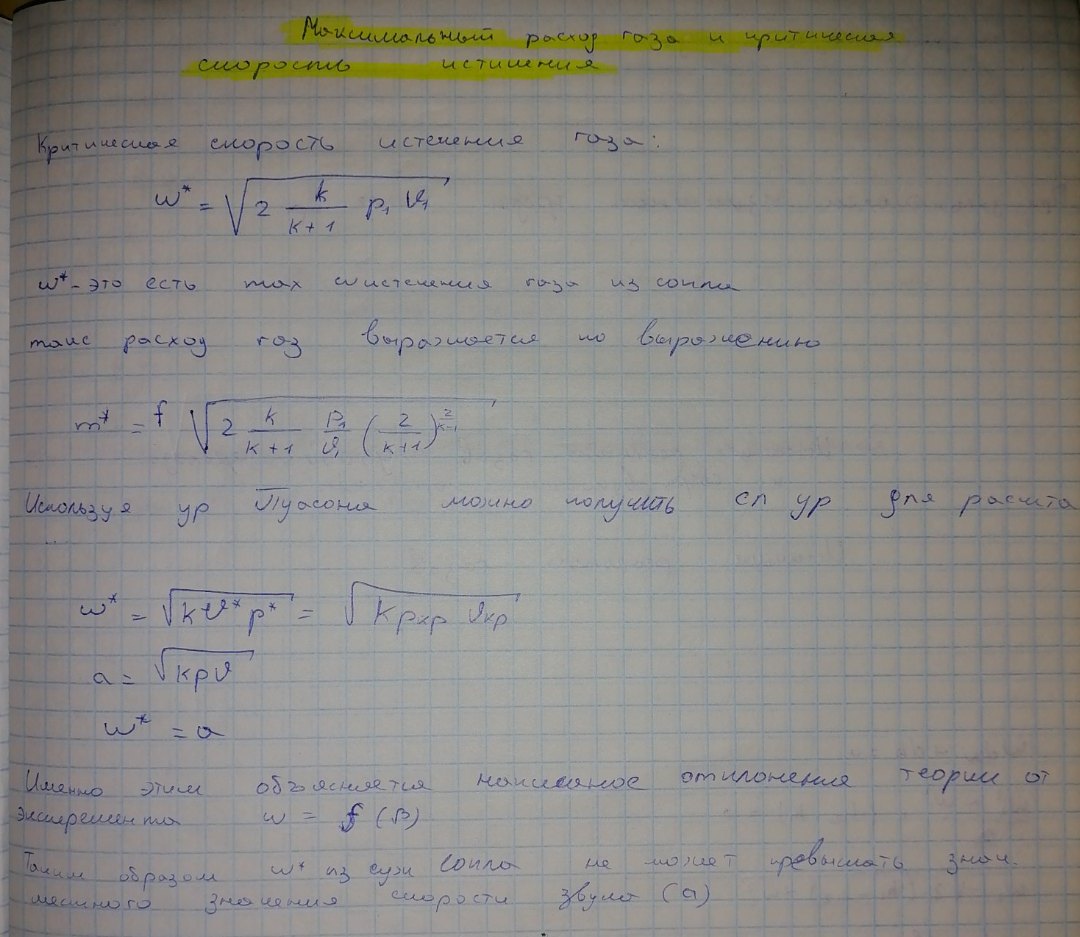 Максимальный расход газа и критическая
скорость истичения
Критическая скорость истечения газа:
w* = √(2 k/(k+1) p₁ ϑ₁)
w* - это есть max w истечения газа из сопла
макс расход газ выражается по выражению
m* = f √(2 k/(k+1) p₁/ϑ₁ (2/(k+1))^(2/(k-1)))
Используя ур Пуасона можно получить сл ур для расчита
w* = √(kϑ*p*) = √(k pкр ϑкр)
a = √(kpϑ)
w* = a
Именно этим объясняется отклонения теории от
w = f(β)
Таким образом w* из суж сопла не может превышать знач.
местного значения скорости звука (a)